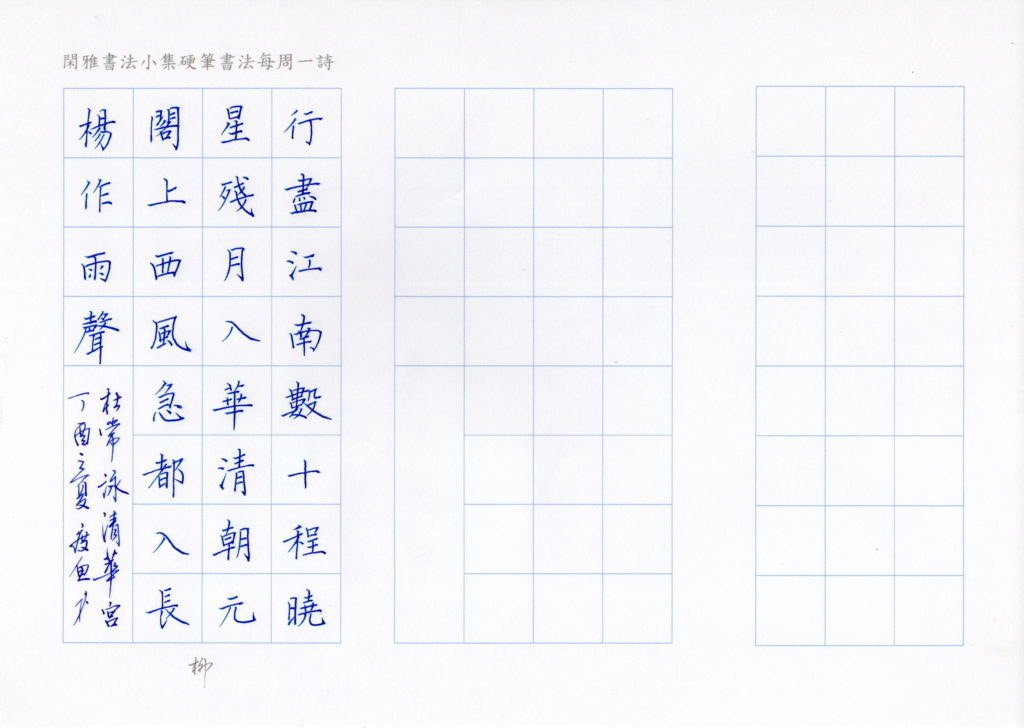 閑雅書法小集硬筆書法每周一詩
行盡江南數十程曉
星殘月入華清朝元
閣上西風急都入長
楊作雨聲
杜常泳清華宮
丁酉立夏
柳